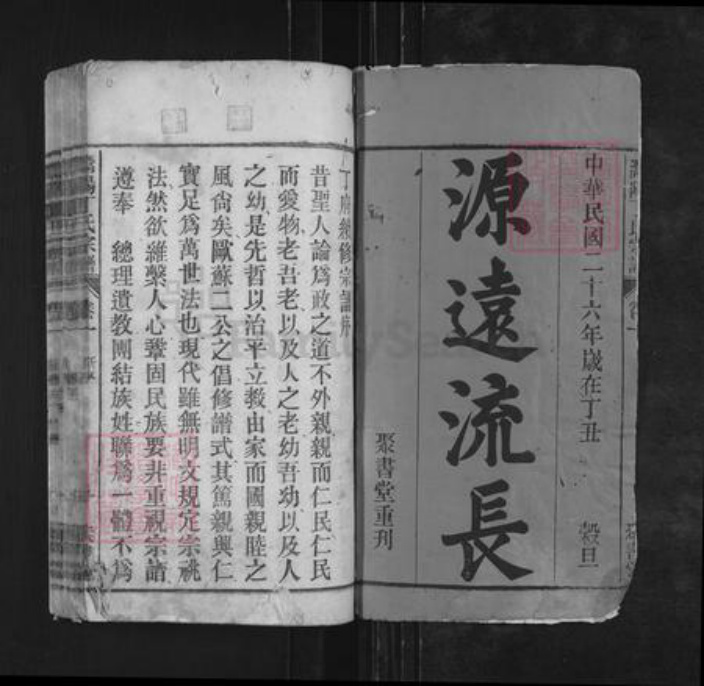 中華民國二十六年歲在丁丑 穀旦
源遠流長
聚書堂重刊
丁府續修宗譜序
昔聖人論爲政之道不外親親而仁民仁民
而愛物老吾老以及人之老幼吾幼以及人
之幼是先哲以治平立教由家而國親睦之
風尙矣歐蘇二公之倡修譜式其篤親興仁
實足爲萬世法也現代雖無明文規定宗祧
法然欲維繫人心鞏固民族要非重視宗譜
遵奉 總理遺教團結族姓聯爲一體不爲
丁氏宗譜 卷一
FamilySearch